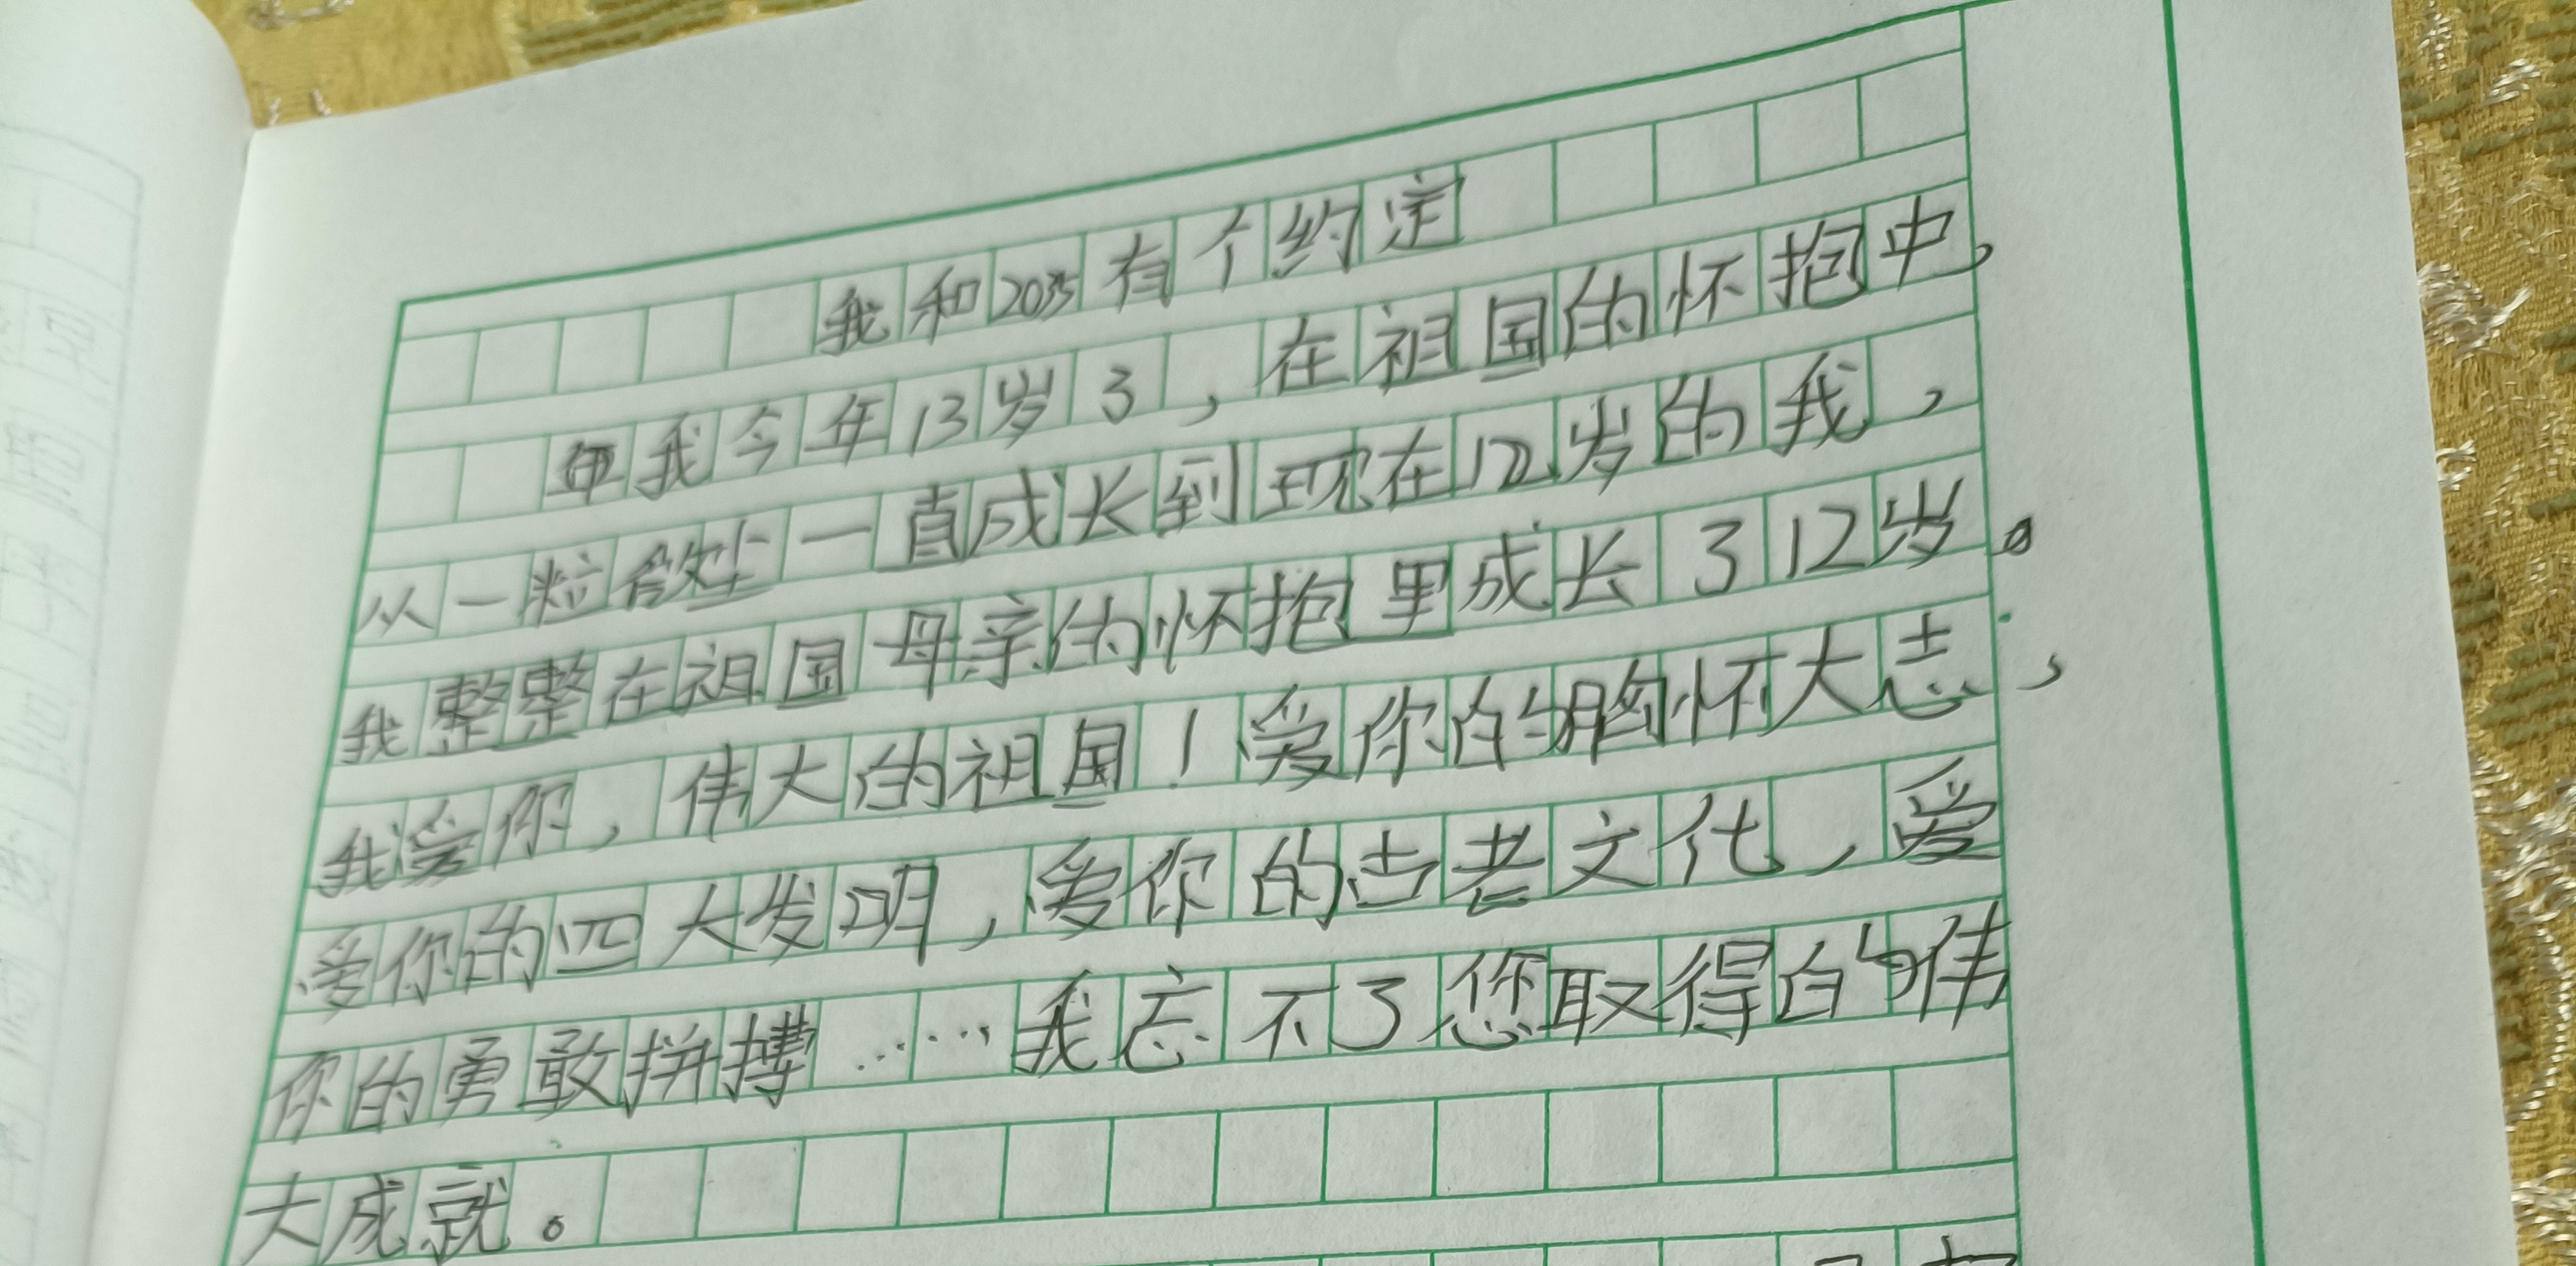 我和2035有个约定
我今年13岁了，在祖国的怀抱中，
从一粒微尘一直成长到现在12岁的我，
我整整在祖国母亲的怀抱里成长了12岁。
我爱你，伟大的祖国！爱你的胸怀大志，
爱你的四大发明，爱你的古老文化，爱
你的勇敢拼搏……我忘不了您取得的伟
大成就。